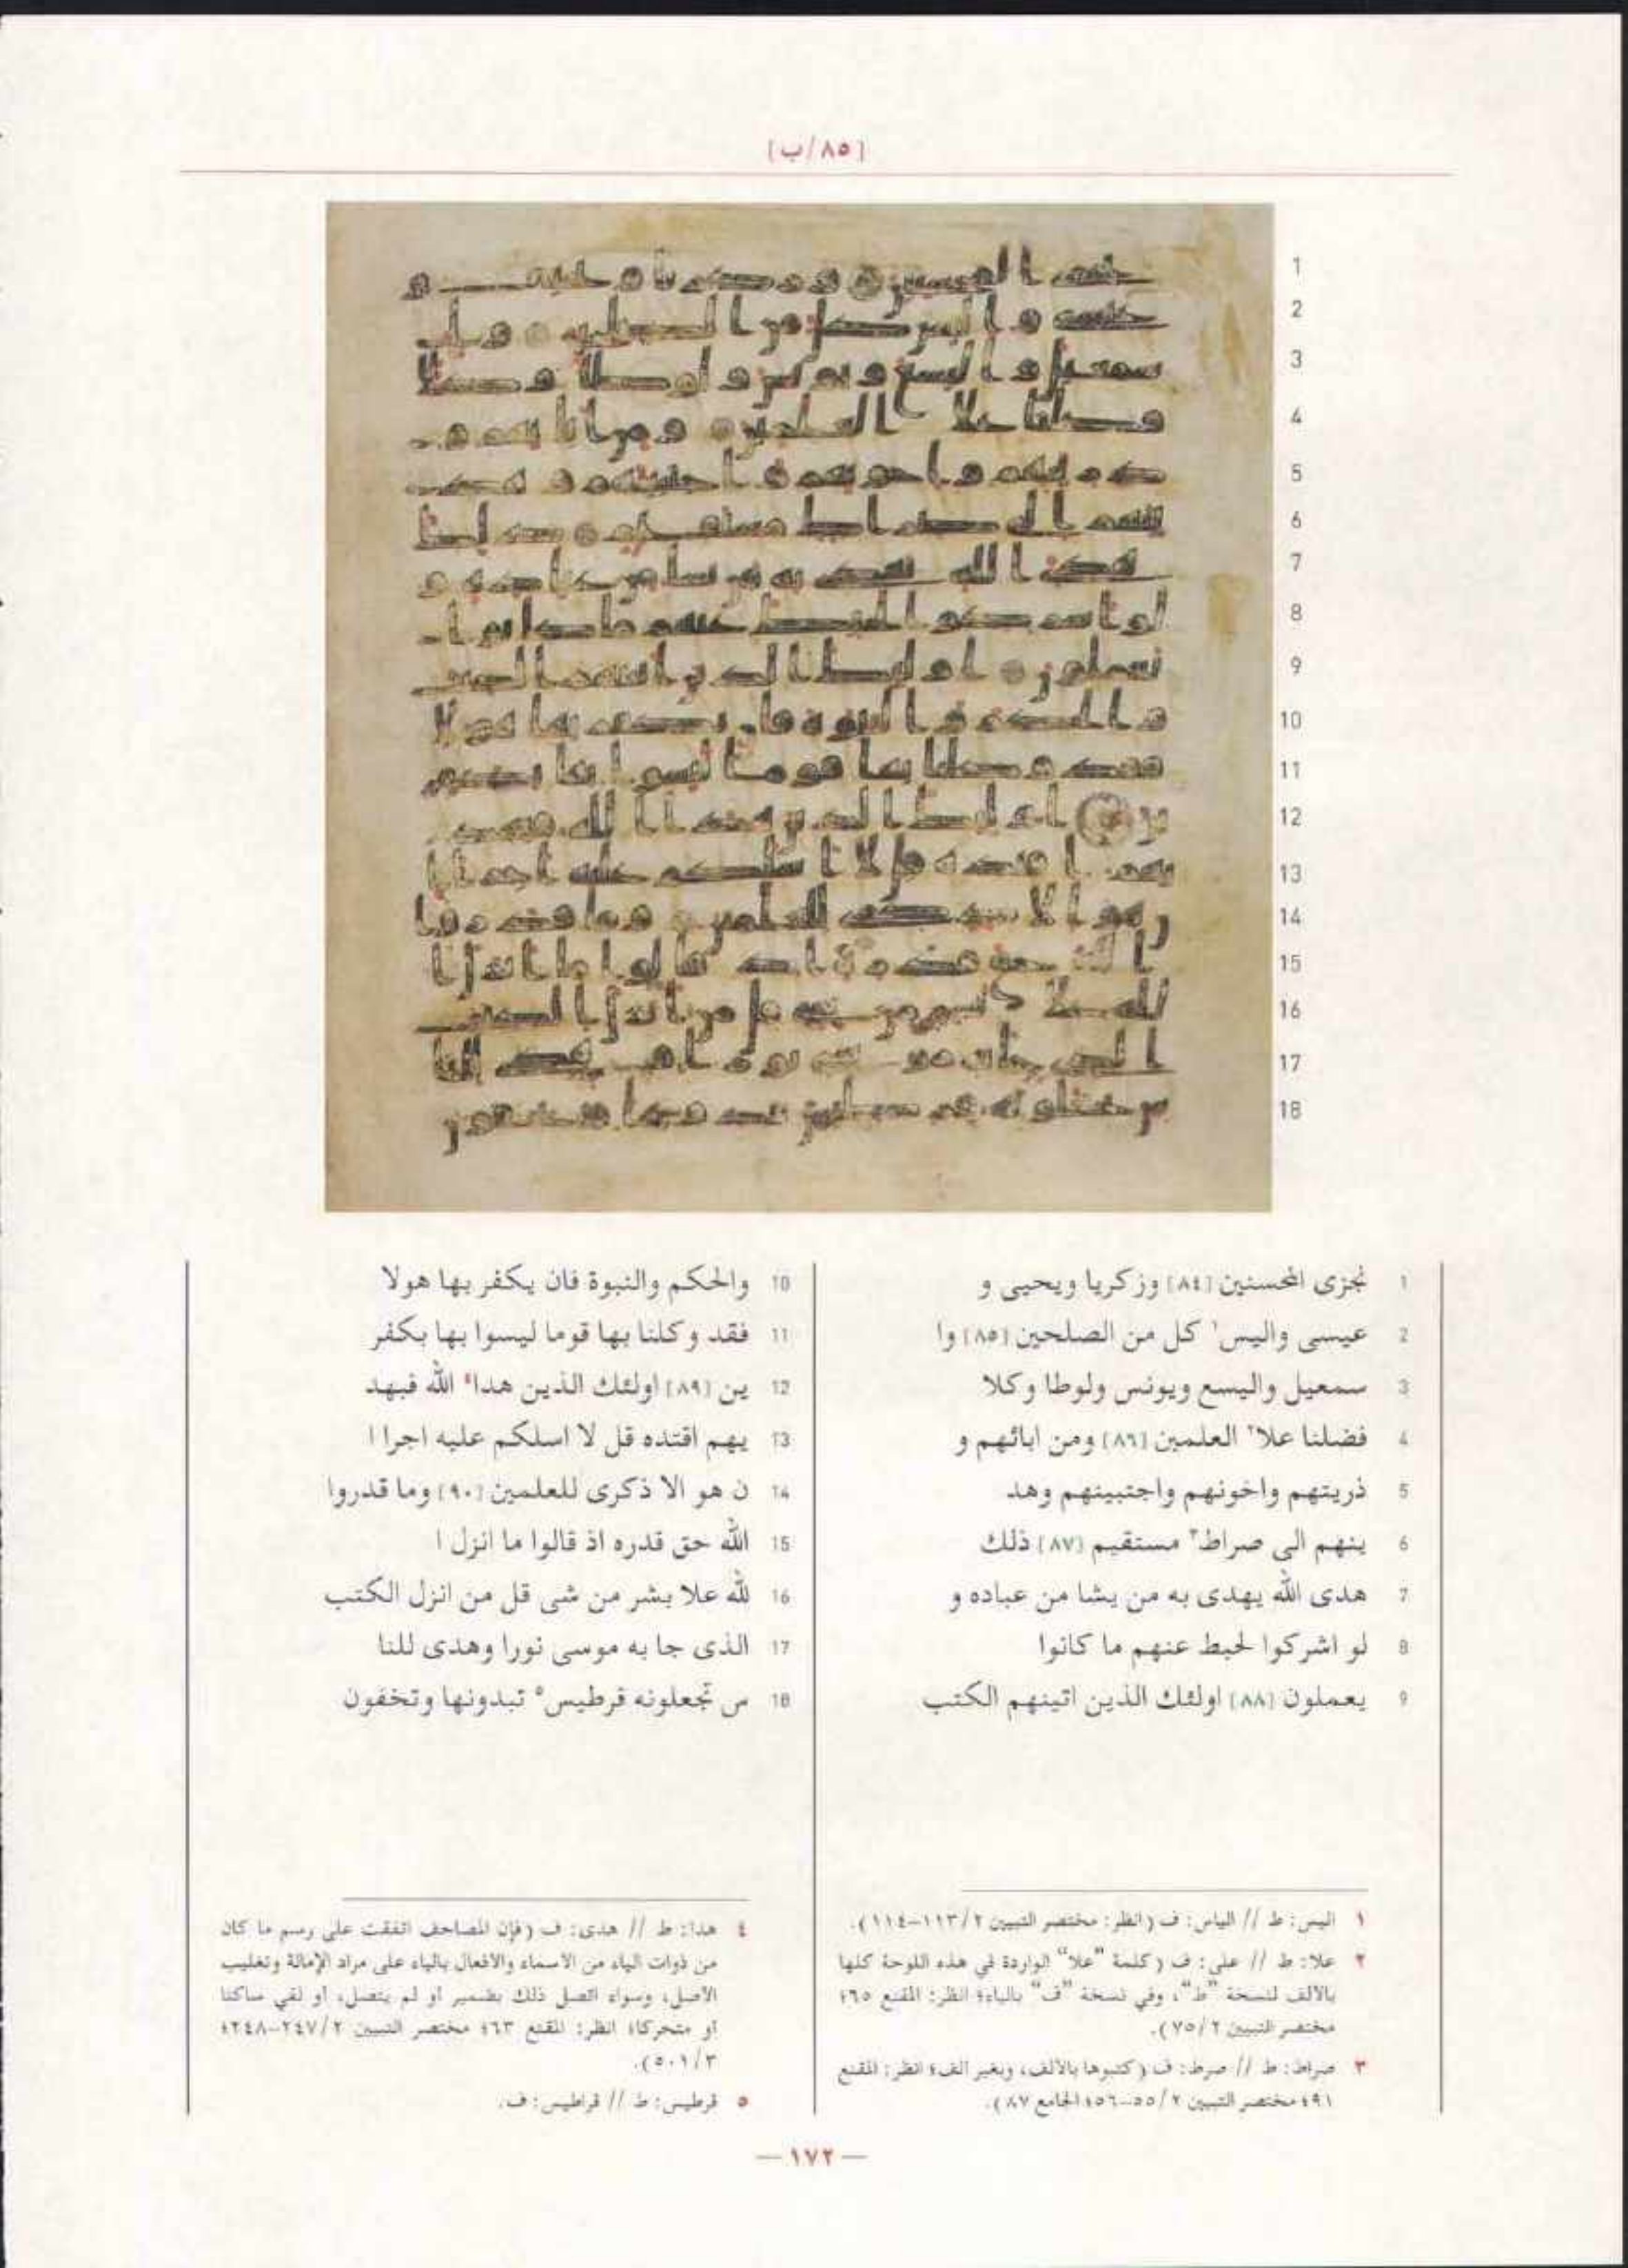 [٨٥/ب]
1 نجزى المحسنين [٨٤] وزكريا ويحيى و
2 عيسى واليس١ كل من الصلحين [٨٥] وا
3 سمعيل واليسع ويونس ولوطا وكلا
4 فضلنا علا٢ العلمين [٨٦] ومن ابائهم و
5 ذريتهم واخونهم واجتبينهم وهد
6 ينهم الى صراط٣ مستقيم [٨٧] ذلك
7 هدى الله يهدى به من يشا من عباده و
8 لو اشركوا لحبط عنهم ما كانوا
9 يعملون [٨٨] اولئك الذين اتينهم الكتب
10 والحكم والنبوة فان يكفر بها هولا
11 فقد وكلنا بها قوما ليسوا بها بكفر
12 ين [٨٩] اولئك الذين هدا٤ الله فبهد
13 يهم اقتده قل لا اسلكم عليه اجرا ا
14 ن هو الا ذكرى للعلمين [٩٠] وما قدروا
15 الله حق قدره اذ قالوا ما انزل ا
16 لله علا بشر من شى قل من انزل الكتب
17 الذى جا به موسى نورا وهدى للنا
18 س تجعلونه قرطيس٥ تبدونها وتخفون
١ اليس: ط // الياس: ف (انظر: مختصر التبيين ٢/ ١١٣-١١٤).
٢ علا: ط // على: ف (كلمة "علا" الواردة في هذه اللوحة كلها
بالألف لنسخة "ط"، وفي نسخة "ف" بالياء؛ انظر: المقنع ٦٥؛
مختصر التبيين ٢/ ٧٥).
٣ صراط: ط // صرط: ف (كتبوها بالألف، وبغير الف؛ انظر: المقنع
٩١؛ مختصر التبيين ٢/ ٥٥-٥٦؛ الجامع ٨٧).
٤ هدا: ط // هدى: ف (فإن المصاحف اتفقت على رسم ما كان
من ذوات الياء من الأسماء والأفعال بالياء على مراد الإمالة وتغليب
الأصل، وسواء اتصل ذلك بضمير أو لم يتصل، أو لقي ساكنا
أو متحركا؛ انظر: المقنع ٦٣؛ مختصر التبيين ٢/ ٢٤٧-٢٤٨؛
٣/ ٥٠١).
٥ قرطيس: ط // قراطيس: ف.
— ١٧٢ —